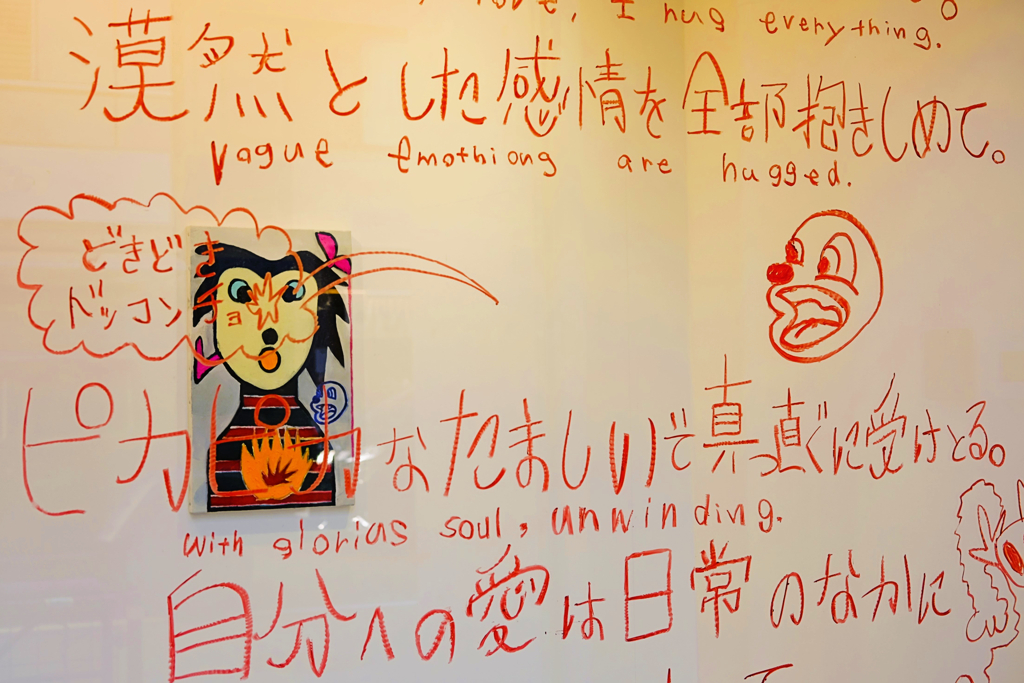 I hug everything.
漠然とした感情を全部抱きしめて。
vague emothiong are hugged.
どきどき
ドッコンチョ
ピカピカなたましいで真っ直ぐに受けとる。
with glorius soul, unwinding.
自分への愛は日常のなかに